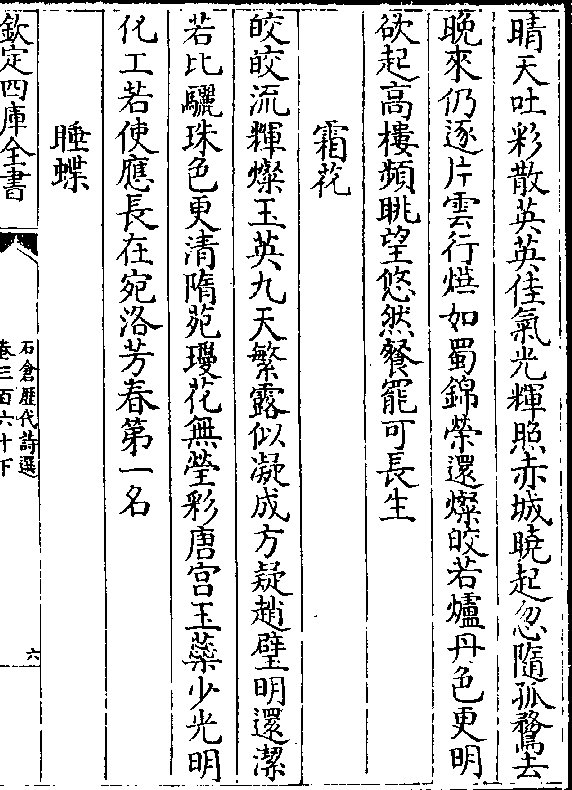 晴天吐彩散英英佳氣光輝照赤城曉起忽隨孤鶩去
晚來仍逐片雲行𤍞如蜀錦榮還燦皎若爐丹色更明
欲起高樓頻眺望悠然餐罷可長生
霜花
皎皎流輝燦玉英九天繁露似凝成方疑趙璧明還潔
若比驪珠色更清隋苑瓊花無瑩彩唐宫玉蘂少光明
化工若使應長在宛洛芳春第一名
睡蝶
欽定四庫全書
石倉歷代詩選
卷三百六十下
六